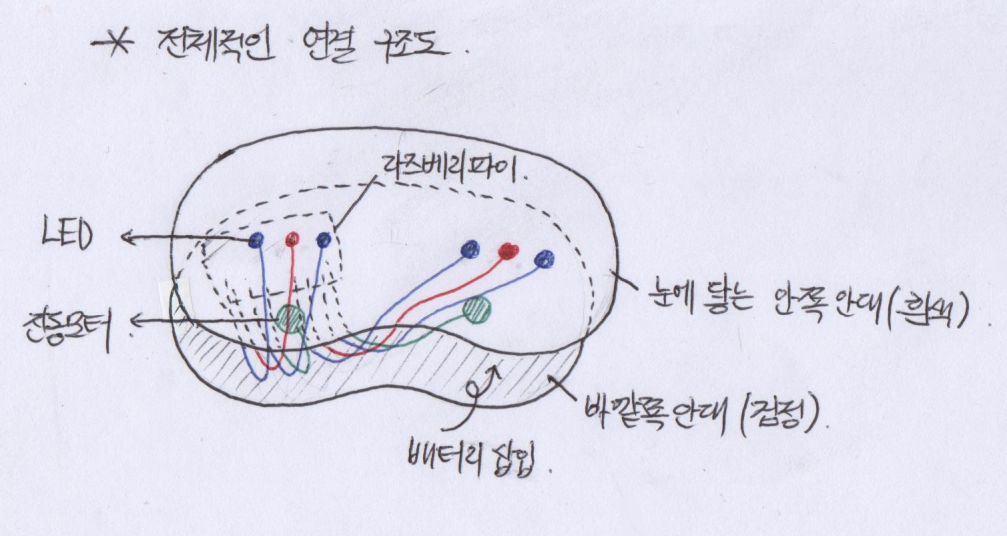 * 전체적인 연결 구조도.
라즈베리파이.
LED
진동모터.
눈에 닿는 안쪽 안대 (흰색).
바깥쪽 안대 (검정).
배터리 삽입.